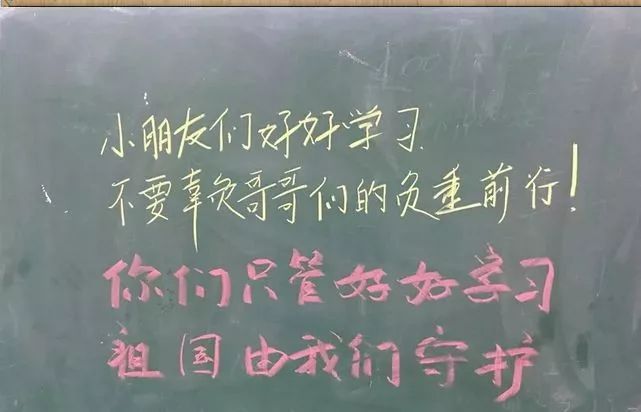 小朋友们好好学习
不要辜负哥哥们的负重前行!
你们只管好好学习
祖国由我们守护